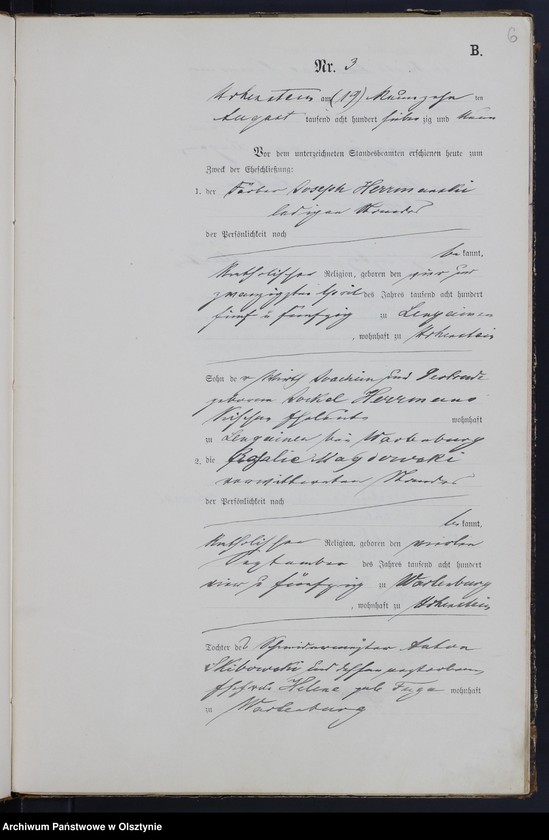 6
B.
Nr. 3
Hohenstein am (19) Neunzehn ten
August tausend acht hundert siebenzig und neun
Vor dem unterzeichneten Standesbeamten erschienen heute zum
Zweck der Eheschließung:
1. der Färber Joseph Herrmanski
ledigen Standes
der Persönlichkeit nach
bekannt,
katholischer Religion, geboren den vier und
zwanzigsten April des Jahres tausend acht hundert
fünf u fünfzig zu Lengainen
, wohnhaft zu Hohenstein
Sohn der Wirth Joachim und Gertrude
geborene Jockel Herrmans
kischen Eheleute wohnhaft
zu Lengainen bei Wartenburg
2. die Rosalie Magdowski
verwittweten Standes
der Persönlichkeit nach
bekannt,
katholischer Religion, geboren den vierten
September des Jahres tausend acht hundert
vier u fünfzig zu Wartenburg
, wohnhaft zu Hohenstein
Tochter des Schneidermeister Anton
Skibowski und dessen verstorbenen
Ehefrau Helene geb wohnhaft
zu Wartenburg
Archiwum Państwowe w Olsztynie